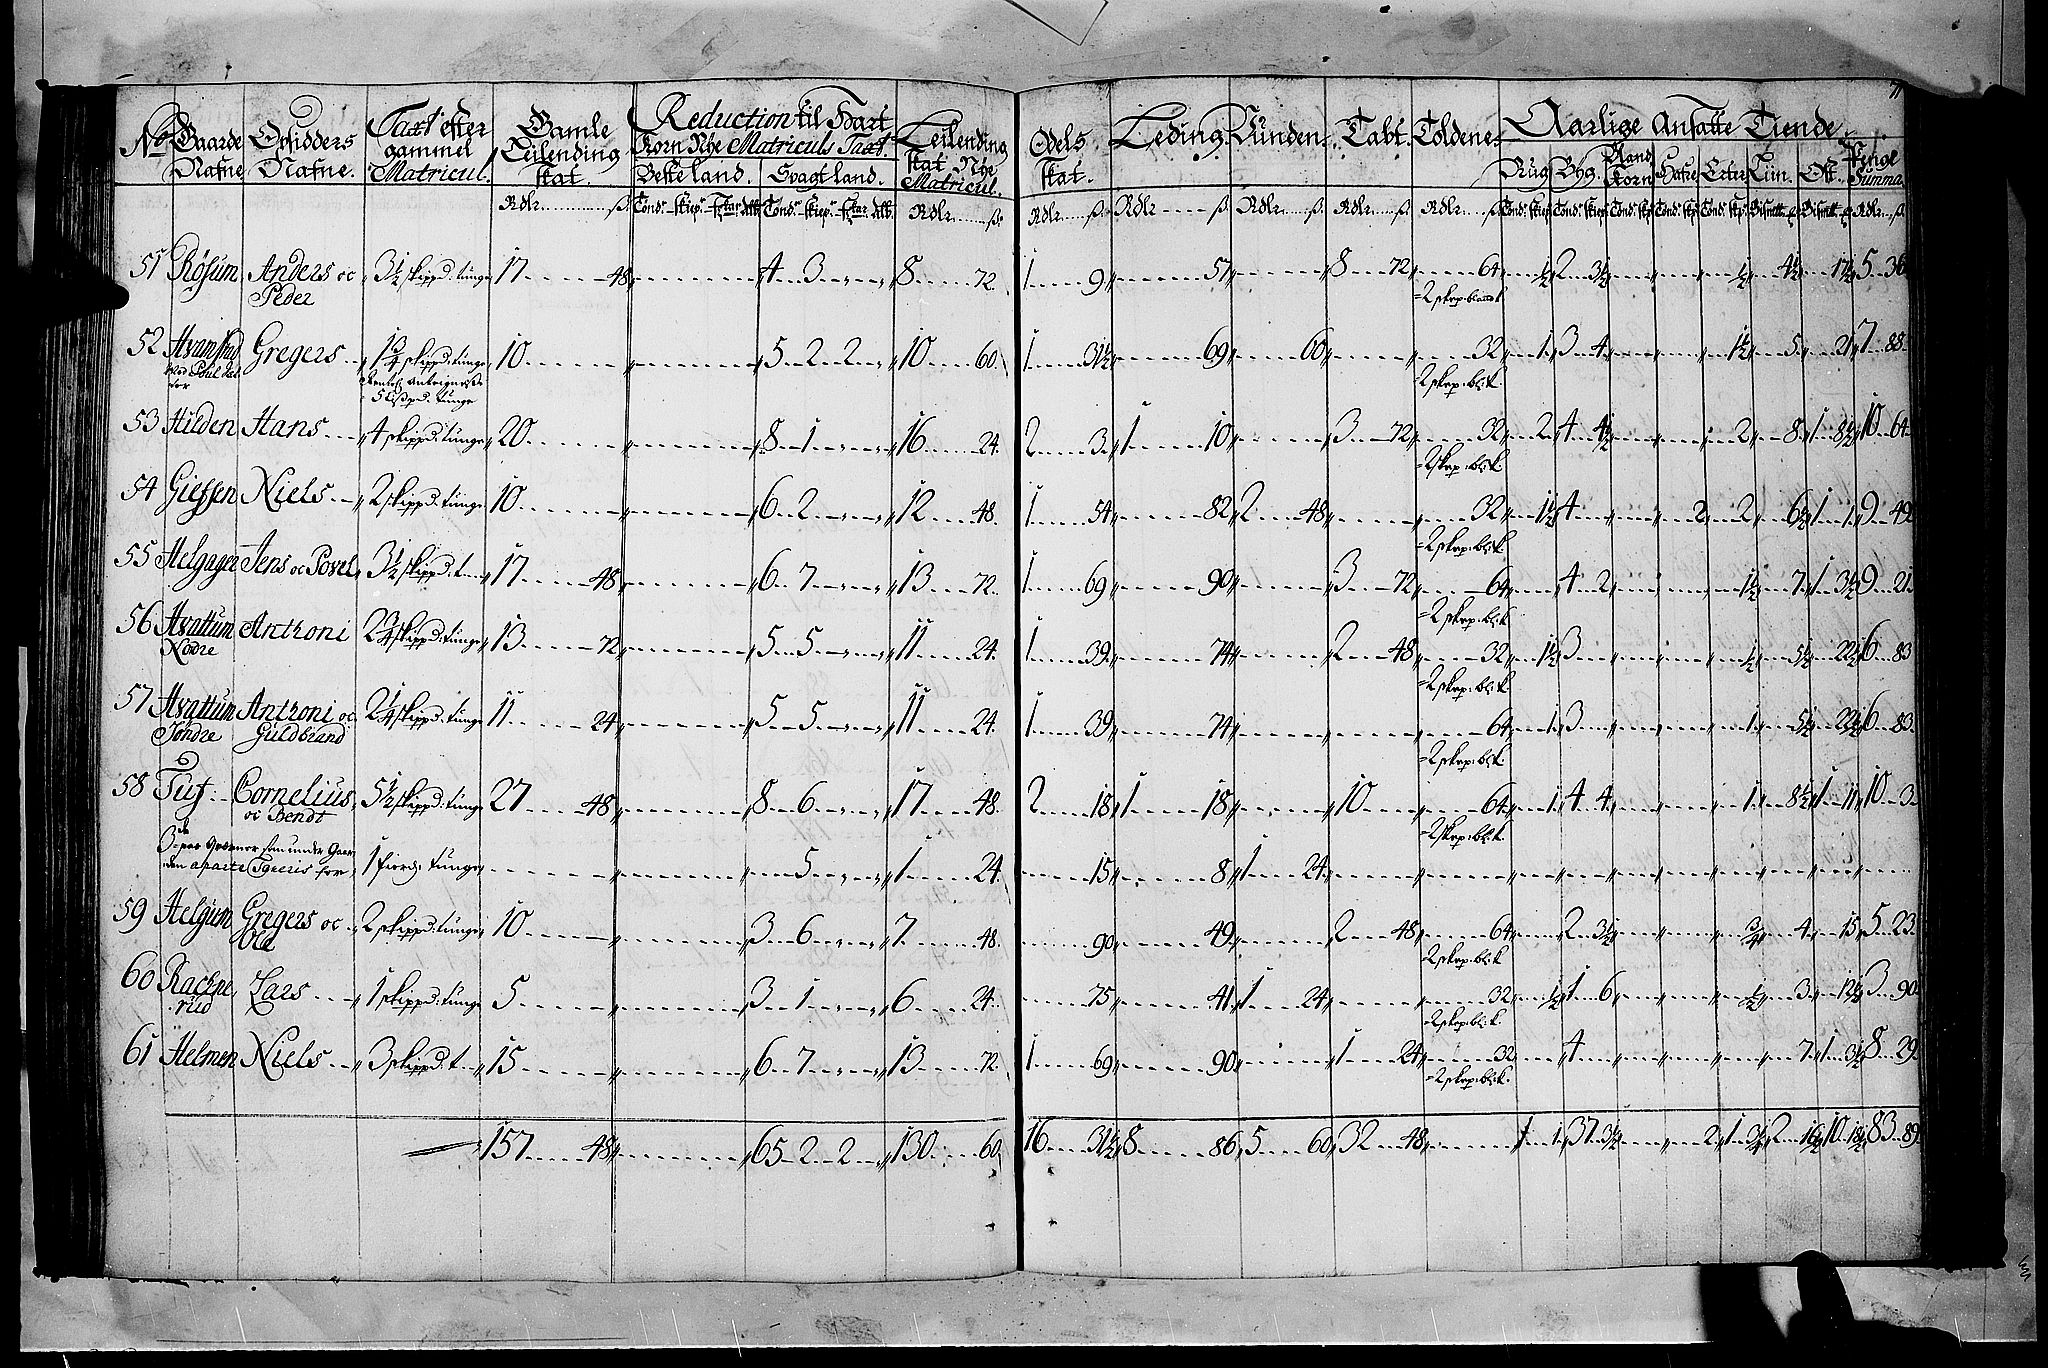 No Gaarde Nafne
Opsidders Nafne.
Taxt efter gammel Matricul.
Gamle Leilending skat.
Reduction til Hart
Korn Nye Matriculs Taxt.
Beste land. Svagt land.
Leilending skat Nye Matricul.
Odels skat.
Leding. Vünden. Tabt. Toldene.
Aarlige Ansatte Tiende
Rug Byg Bland Korn Hafre Erter Lin. Ost. Penge Summa
Rdlr ß Tond. skiep. Tond. skiep. Rdlr ß
51 Røsum Anders oc 3½ skippd: tunge 17 48 4 3 8 72 1 9 57 8 72 64 ½ 2 3½ ½ 4½ 17½ 5 36
Peder
52 Hvamstad Gregers 1¾ skippd: tunge 10 5 2 2 10 60 1 31½ 69 60 32 1 3 4 1½ 5 21 7 88
2 skrp: bl: k
5 Lispd: tunge
53 Hilden Hans 4 skippd: tunge 20 8 1 16 24 2 3 1 10 3 72 32 2 4 4½ 2 8 1 8½ 10 64
2 skrp: bl: k
54 Giessen Niels 2 skippd: tunge 10 6 2 12 48 1 54 82 2 48 32 1½ 4 2 2 6½ 1 1 9 49
2 skrp: bl: k
55 Helgager Jens oc Povel 3½ skippd: t 17 48 6 7 13 72 1 69 90 3 72 64 4 2 1½ 7 1 3½ 9 21
2 skrp: bl: k
56 Hvattum Antroni 2¾ skippd: tunge 13 72 5 5 11 24 1 39 74 2 48 32 1½ 3 ½ 5½ 22½ 6 83
Nordre
2 skrp: bl: k
57 Hvattum Antroni oc 2¼ skippd: tunge 11 24 5 5 11 24 1 39 74 64 1 3 1 5½ 22½ 6 83
Søndre Guldbrand
2 skrp: bl: k
58 Tuf Cornelius 5½ skippd: tunge 27 48 8 6 17 48 2 18 1 18 10 64 1 4 4 1 8½ 1 11 10 3
oc Bendt
2 skrp: bl: k
som under Gaar
den aparte for 1 tunge 5 1 24 15 8 1 24
59 Helgum Gregers oc 2 skippd: tunge 10 3 6 7 48 90 49 2 48 64 2 3½ ¾ 4 15 5 23
Ole
2 skrp: bl: k
60 Rackne Lars 1 skippd: tunge 5 3 1 6 24 75 41 1 24 32 ½ 1 6 ½ 3 12½ 3 90
rud
2 skrp: bl: k
61 Helmen Niels 3 skippd: t 15 6 7 13 72 1 69 90 1 24 32 4 7 1 3½ 8 29
2 skrp: bl: k
157 48 65 2 2 130 60 16 31½ 8 86 5 60 32 48 1 1 37 3½ 2 1 3¼ 2 16½ 10 18½ 83 89